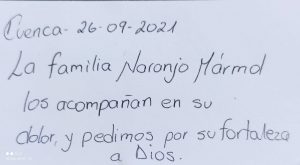 Cuenca - 26-09-2021
La familia Naranjo Mármol
los acompañan en su
dolor, y pedimos por su fortaleza
a Dios.